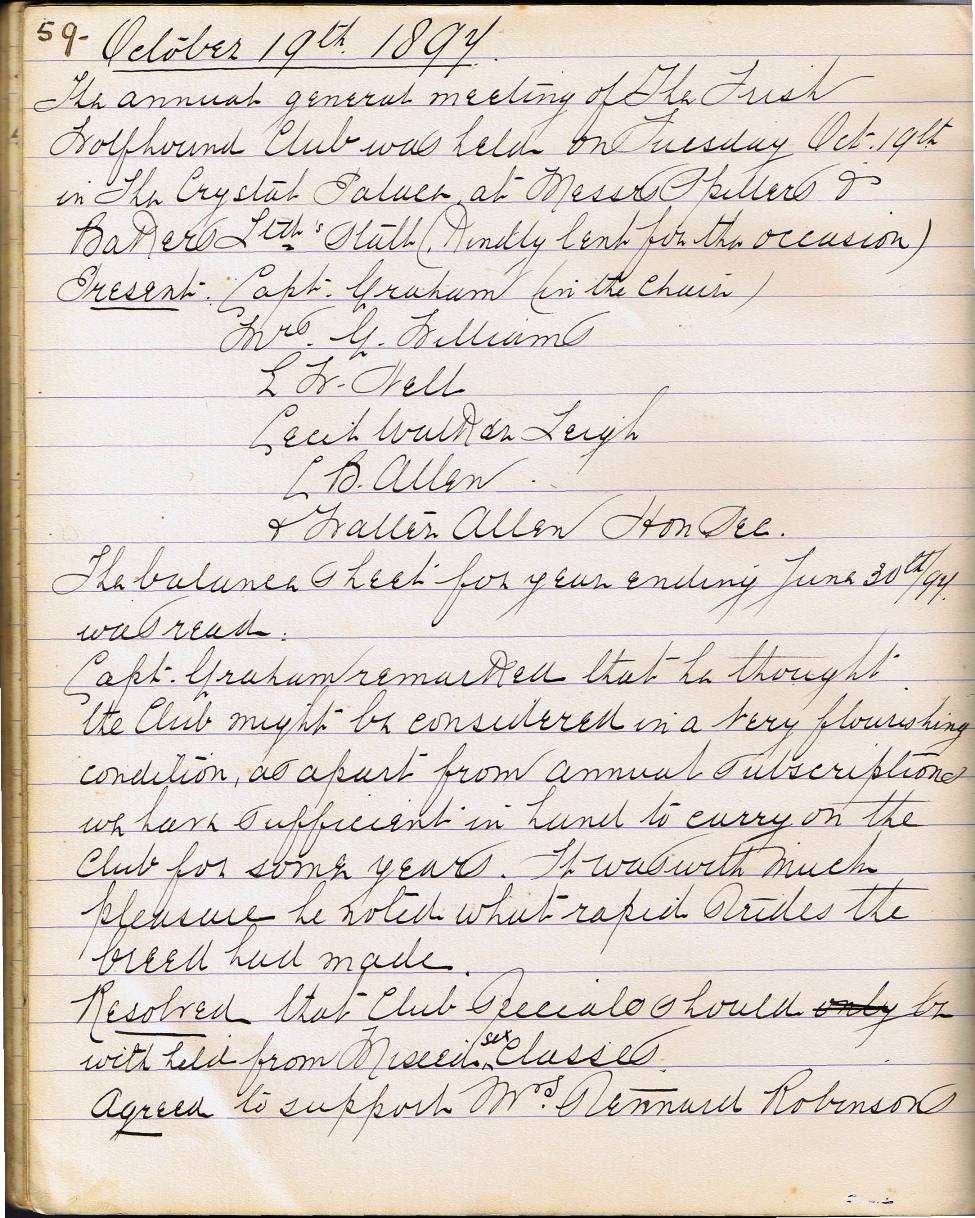 59-
October 19th 1897.
The annual general meeting of The Irish
Wolfhound Club was held on Tuesday Oct. 19th
in The Crystal Palace, at Messrs Spillers &
Bakers Ltd's Stall (Kindly lent for the occasion)
Present. Capt. Graham (in the Chair)
Mrs. G. Williams
W. Nell
Cecil Walker Leigh
B. Allen
& Walter Allen Hon Sec.
The balance sheet for year ending June 30th/97.
was read.
Capt. Graham remarked that he thought
the Club might be considered in a very flourishing
condition, as apart from annual subscriptions
we have sufficient in hand to carry on the
Club for some years. It was with much
pleasure he noted what rapid Strides the
breed had made.
Resolved that Club Specials should only be
with held from Mixed sex Classes.
Agreed to support Mrs. Stennard Robinsons